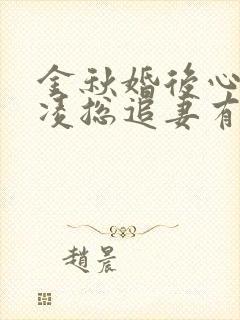 金秋婚後心
凌總追妻有
趙晨